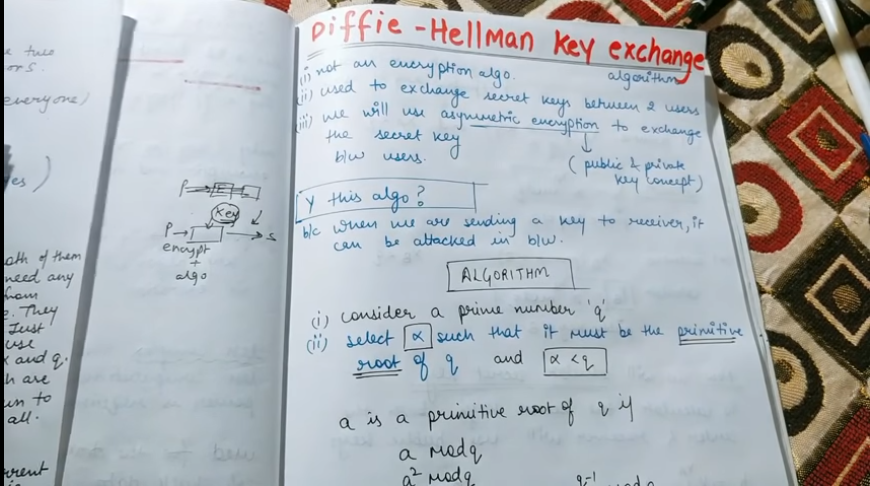 e two
ors.
everyone)
es)
oth of them
need any
from
e. They
Just
use
α and q.
h are
un to
all.
rrent
P → E
Key
P → → S
encrypt
+
algo
Diffie-Hellman Key exchange
algorithm
(i) not an encryption algo.
(ii) used to exchange secret keys between 2 users
(iii) we will use asymmetric encryption to exchange
the secret key
b/w users.
(public & private
key concept)
Y this algo?
b/c when we are sending a key to receiver, it
can be attacked in b/w.
ALGORITHM
(i) consider a prime number 'q'
(ii) select α such that it must be the primitive
root of q and α < q
a is a primitive root of q if
a mod q
a² mod q
q-1 mod q